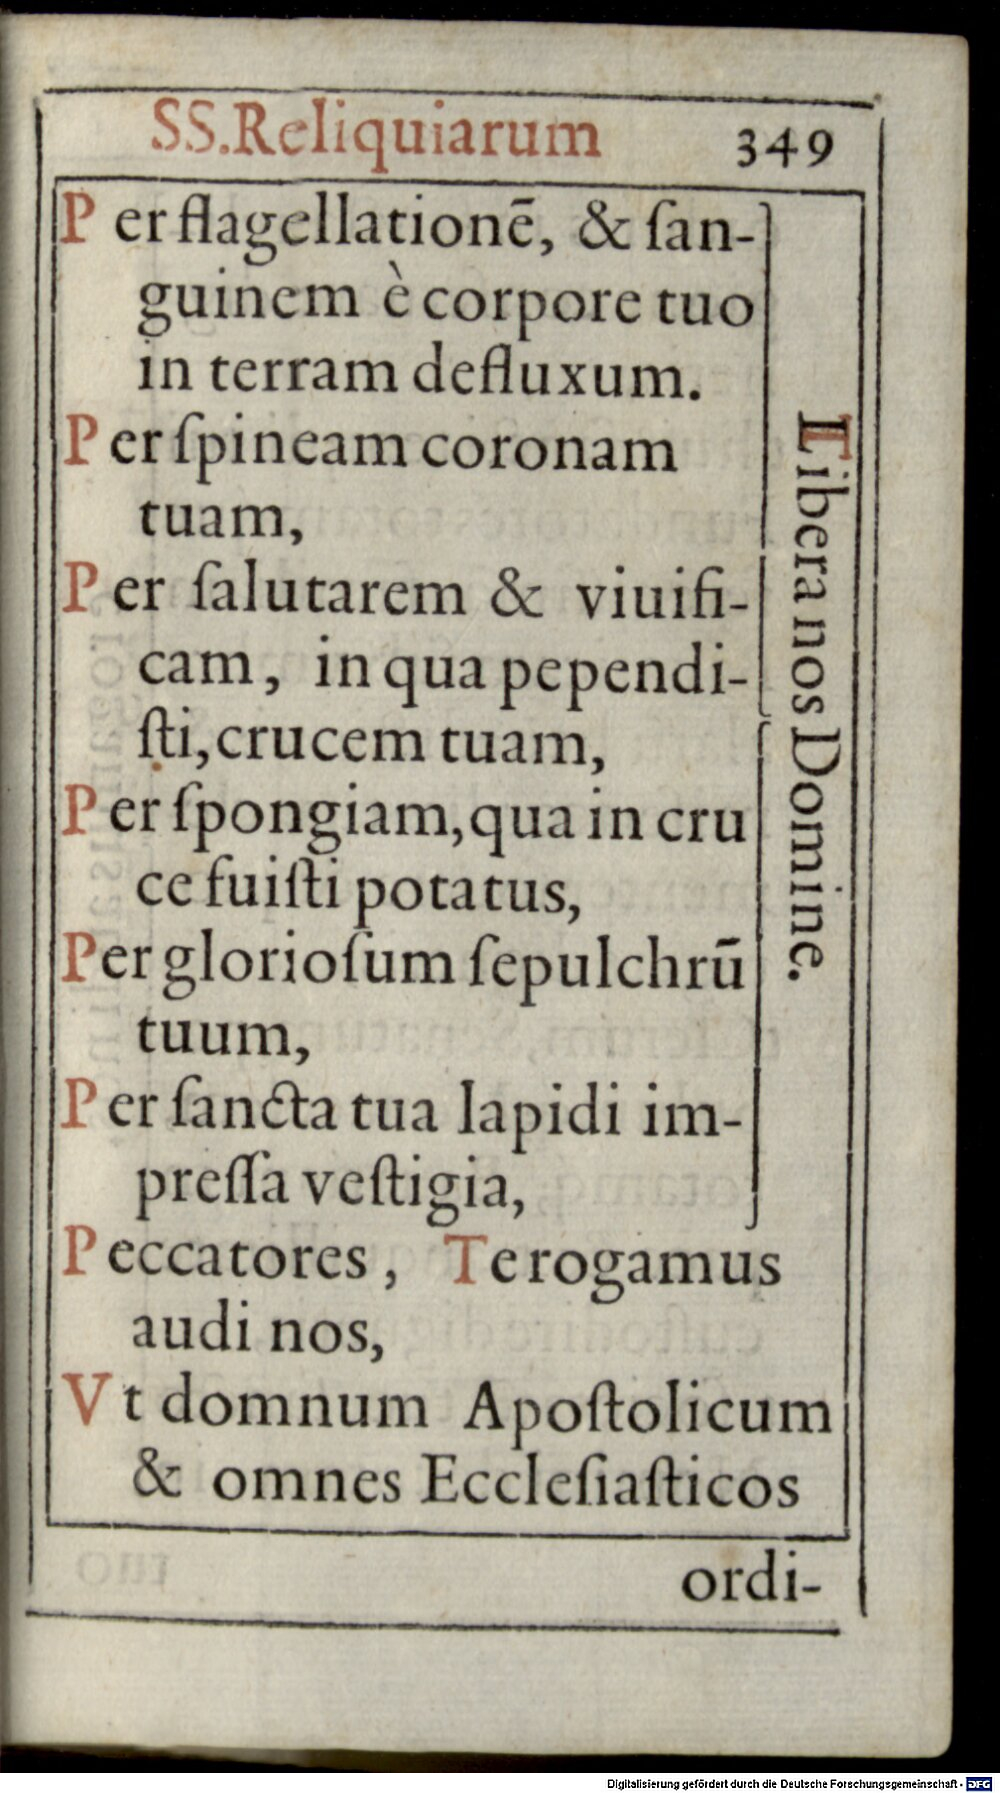 SS. Reliquiarum 349
Per flagellationē, & ſan-
guinem è corpore tuo
in terram defluxum.
Per ſpineam coronam
tuam,
Per ſalutarem & viuifi-
cam, in qua pependi-
ſti, crucem tuam,
Per ſpongiam, qua in cru
ce fuiſti potatus,
Per glorioſum ſepulchrū
tuum,
Per ſancta tua lapidi im-
preſſa veſtigia,
Libera nos Domine.
Peccatores, Te rogamus
audi nos,
Vt domnum Apoſtolicum
& omnes Eccleſiaſticos
ordi-
Digitalisierung gefördert durch die Deutsche Forschungsgemeinschaft - DFG